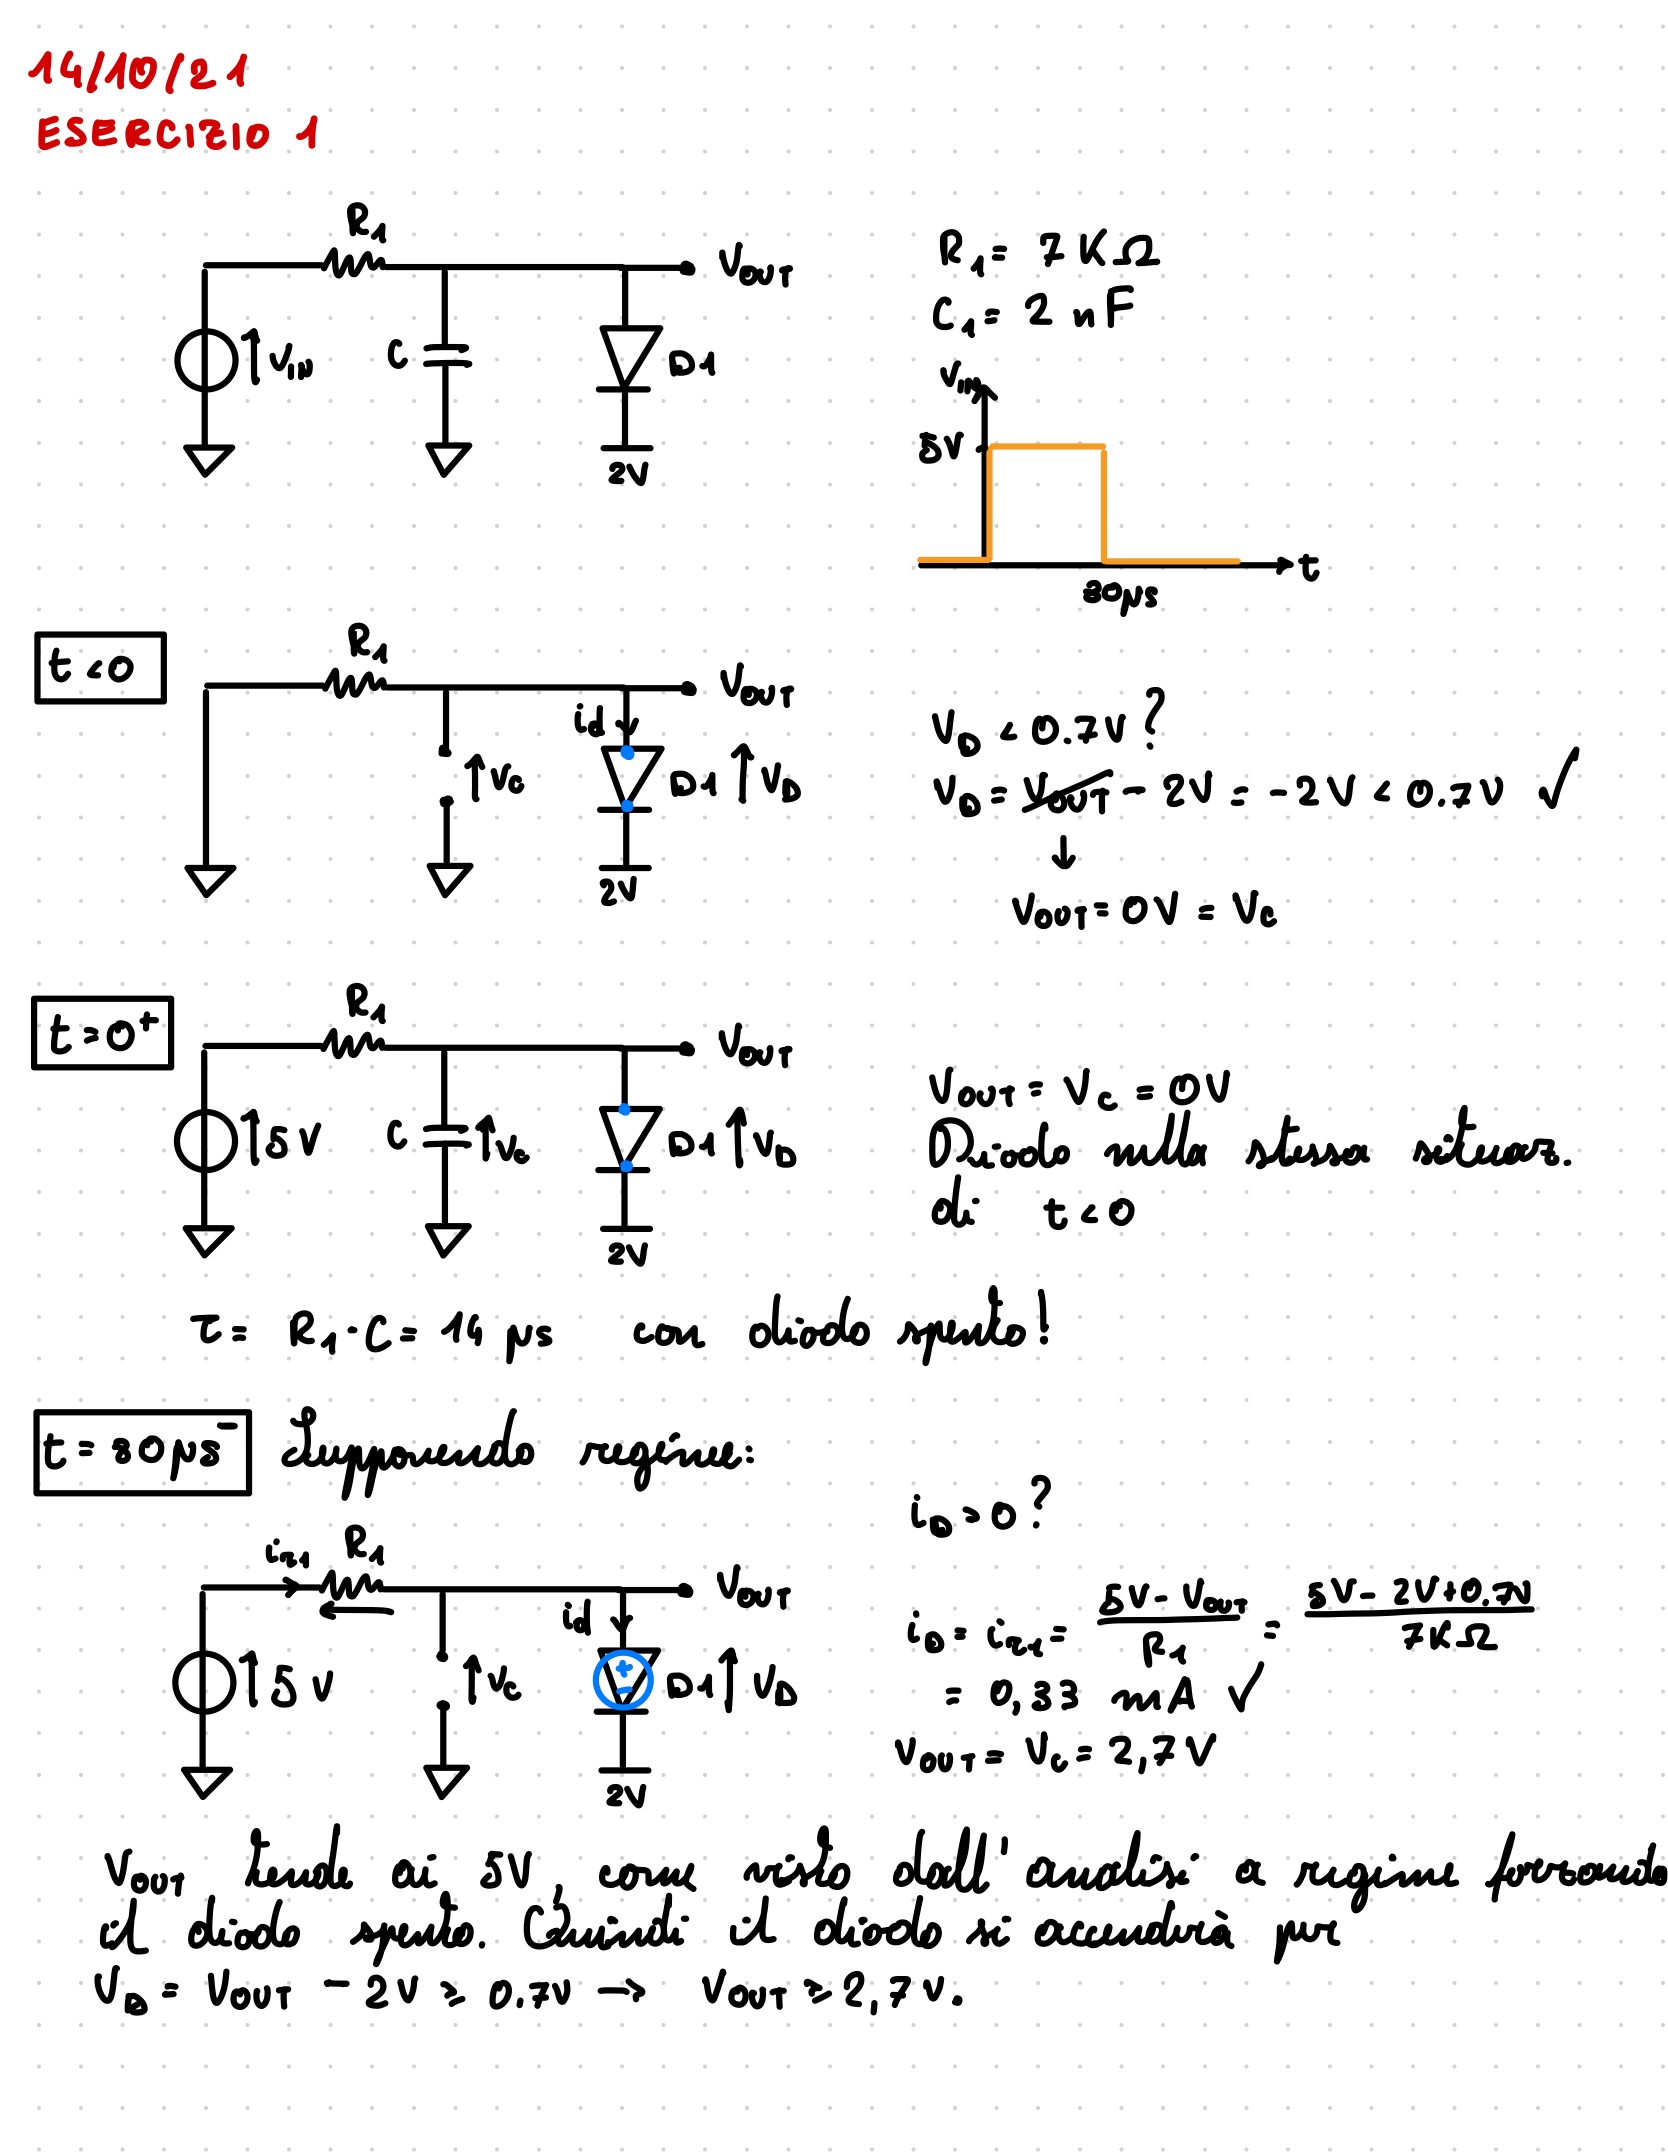 14/10/21
ESERCIZIO 1
R1
VOUT
VIN
C
D1
2V
R1 = 7 KΩ
C1 = 2 nF
VIN
5V
80µs
t
t < 0
R1
VOUT
id
VC
D1
VD
2V
VD < 0.7V ?
VD = VOUT - 2V = -2V < 0.7V ✓
↓
VOUT = 0V = VC
t = 0+
R1
VOUT
5V
C
VC
D1
VD
2V
VOUT = VC = 0V
Diodo nella stessa situaz.
di t < 0
τ = R1 · C = 14 µs con diodo spento!
t = 80µs- Supponendo regime:
ir1
R1
VOUT
id
5V
VC
+
-
D1
VD
2V
iD > 0 ?
iD = ir1 = 5V - VOUT / R1 = 5V - 2V + 0.7V / 7KΩ
= 0,33 mA ✓
VOUT = VC = 2,7V
VOUT tende ai 5V, come visto dall'analisi a regime forzando
il diodo spento. Quindi il diodo si accenderà per
VD = VOUT - 2V ≥ 0.7V → VOUT ≥ 2,7V.